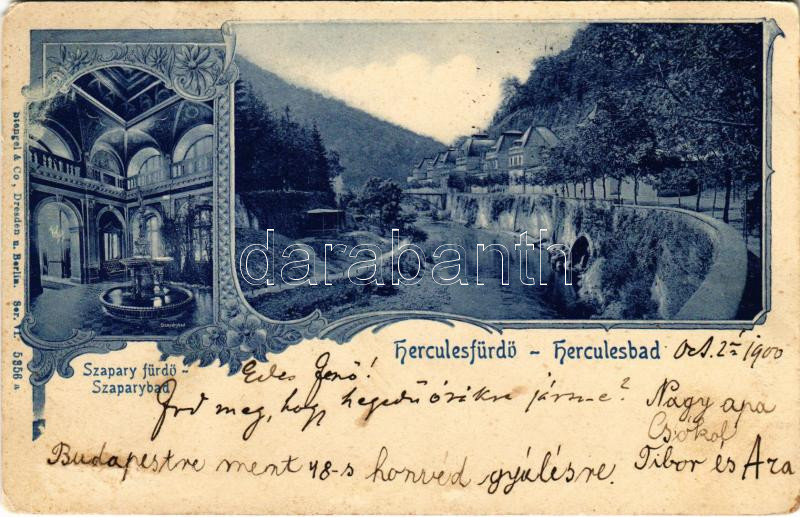 Stengel & Co, Dresden u. Berlin. Ser. VI. 5956 a
Szaparybad
darabanth
Szapary fürdő -
Szaparybad
Herculesfürdő - Herculesbad
Oct. 2 1900
Edes Jenő!
Ird meg, hogy hegedűórikra jársz-e?
Nagy apa
Csókol
Budapestre ment 48-s honvéd gyűlésre.
Tibor és Ara